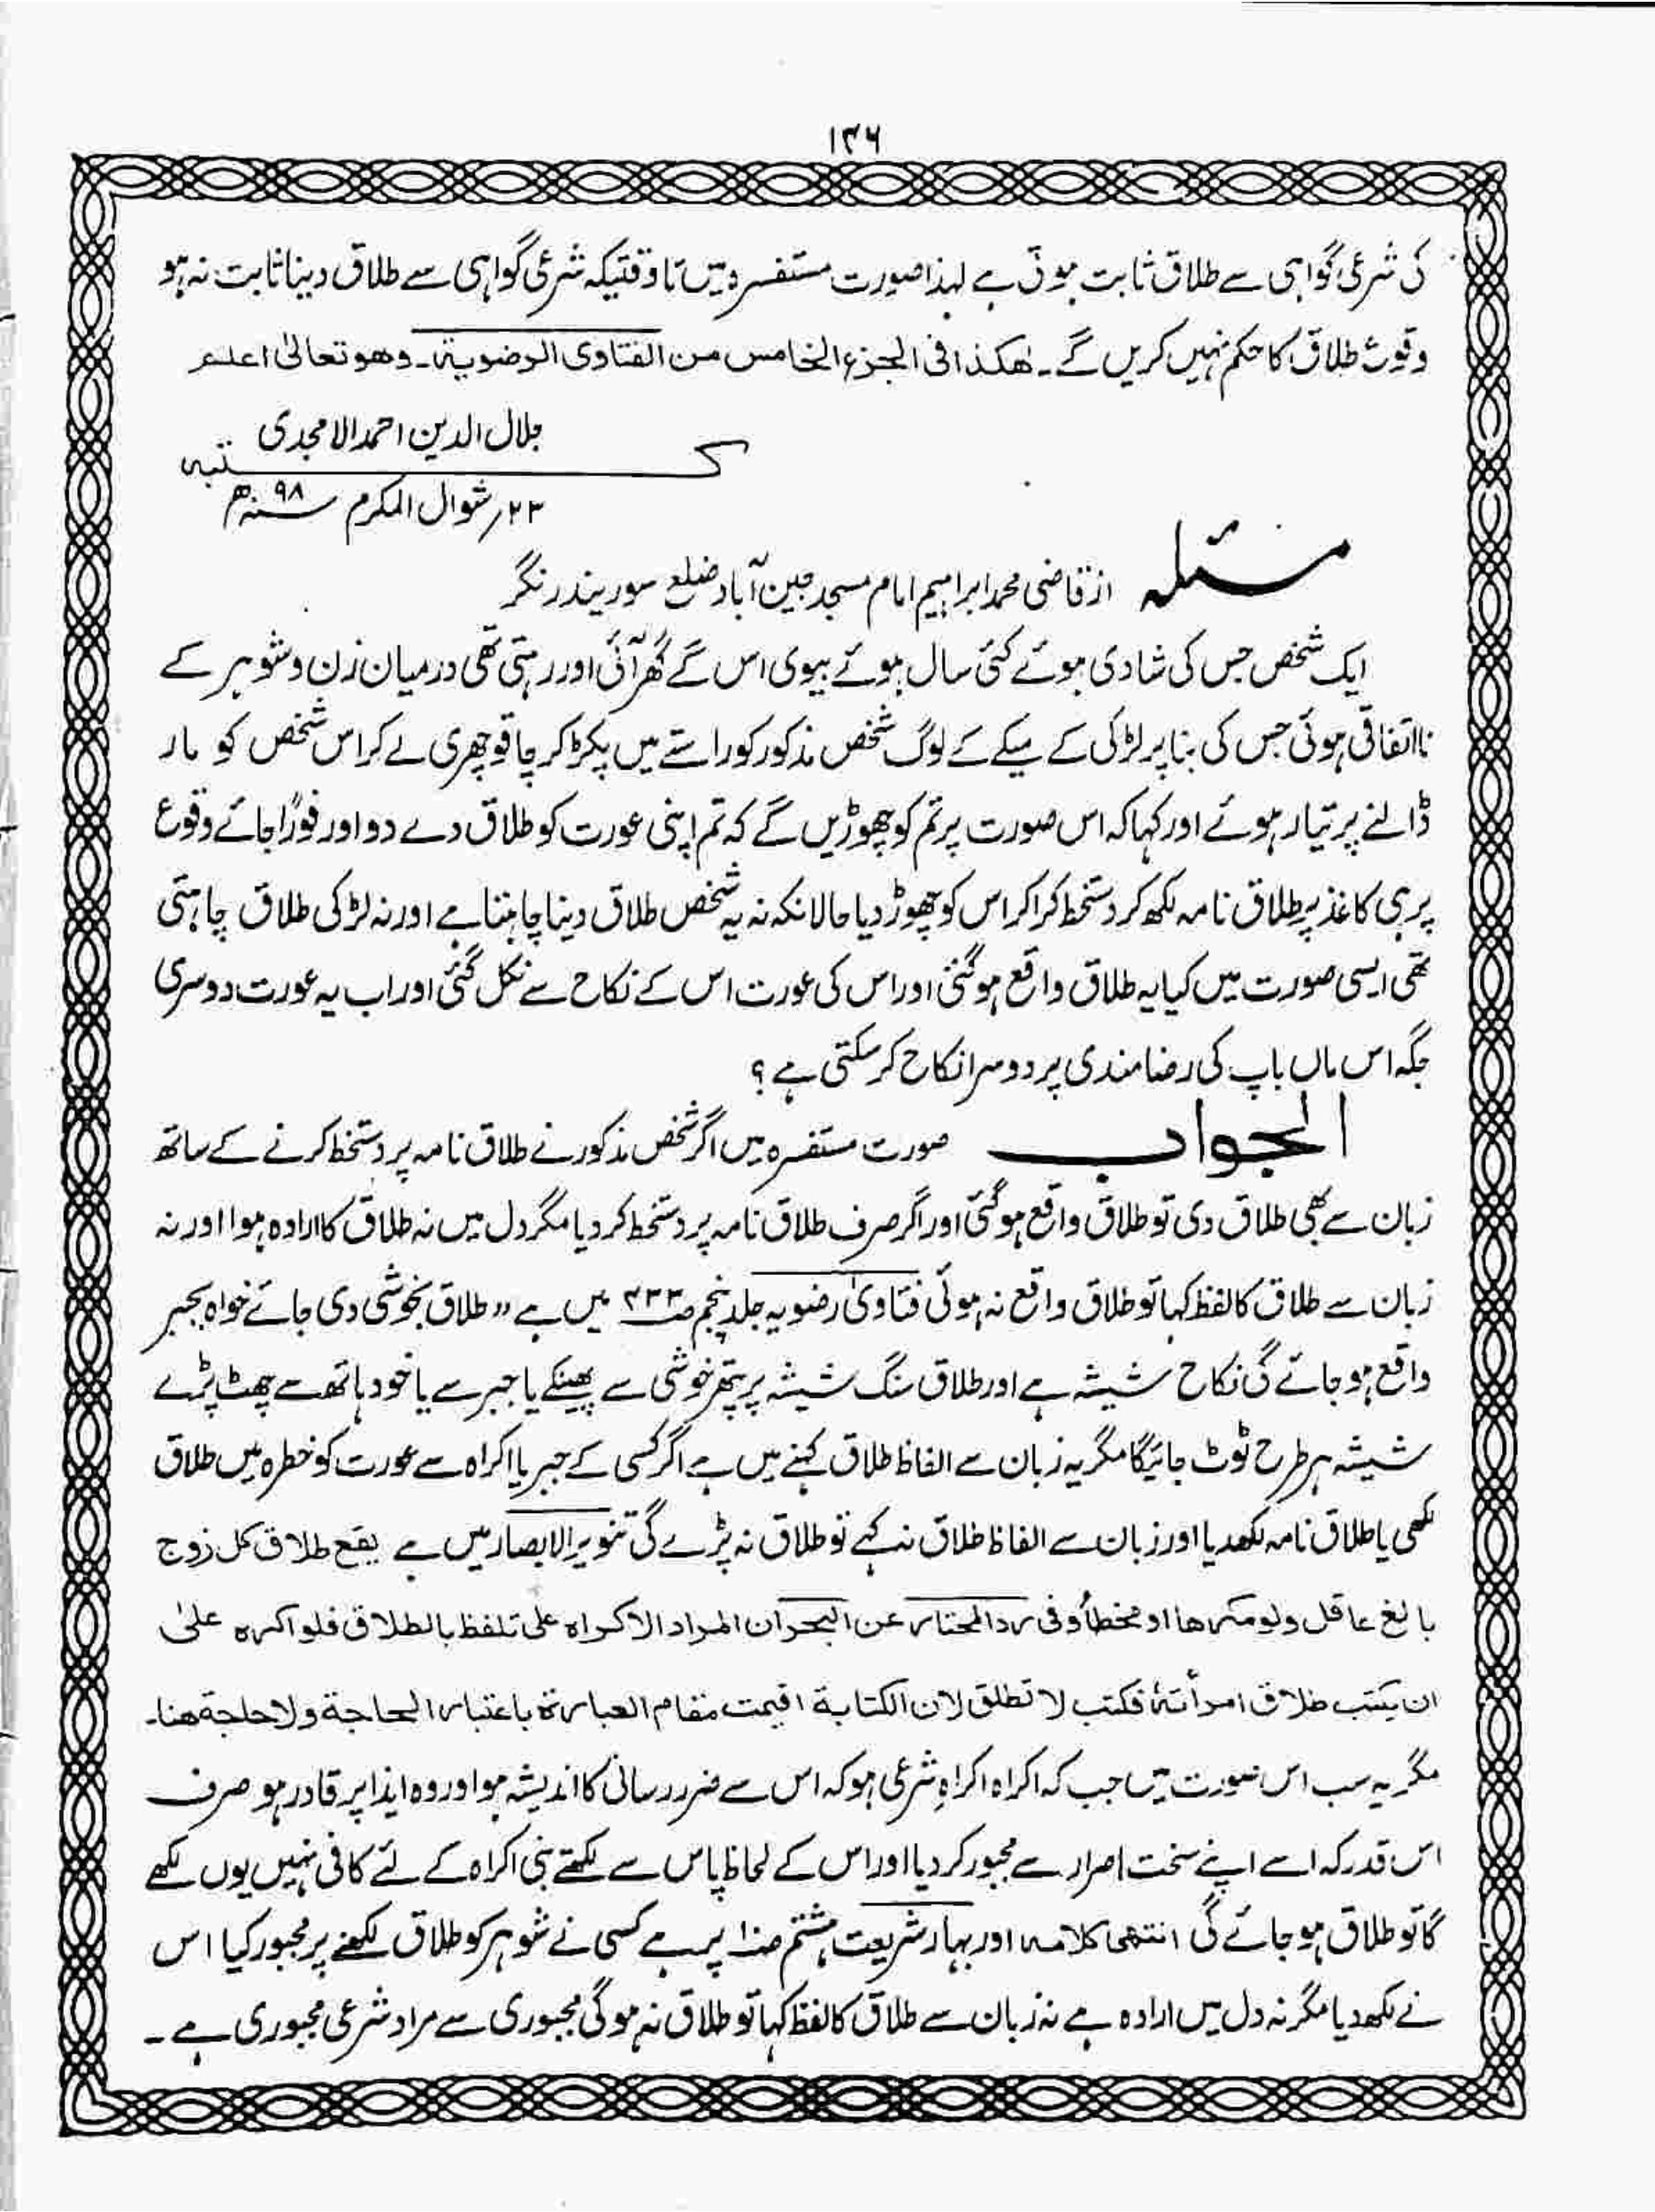 ۱۳۶
کی شرعی گواہی سے طلاق ثابت ہوتی ہے لہذا صورت مستفسرہ میں تا وقتیکہ شرعی گواہی سے طلاق دینا ثابت نہ ہو
وقوع طلاق کا حکم نہیں کریں گے۔ ھٰکذا فی الجزء الخامس من الفتاوی الرضویۃ۔ وھو تعالیٰ اعلم
جلال الدین احمد الامجدی
کتبہ
۲۳؍ شوال المکرم ۹۸ سنہ ھ
مسئلہ از قاضی محمد ابراہیم امام مسجد جین آباد ضلع سوریندر نگر
ایک شخص جس کی شادی ہوئے کئی سال ہوئے بیوی اس کے گھر آئی اور رہتی تھی درمیان زن و شوہر کے
نااتفاقی ہوئی جس کی بنا پر لڑکی کے میکے کے لوگ شخص مذکور کو راستے میں پکڑ کر چاقو چھری لے کر اس شخص کو مار
ڈالنے پر تیار ہوئے اور کہا کہ اس صورت پر تم کو چھوڑیں گے کہ تم اپنی عورت کو طلاق دے دو اور فوراً جائے وقوع
پر ہی کاغذ پر طلاق نامہ لکھ کر دستخط کرا کر اس کو چھوڑ دیا حالانکہ نہ یہ شخص طلاق دینا چاہتا ہے اور نہ لڑکی طلاق چاہتی
تھی ایسی صورت میں کیا یہ طلاق واقع ہو گئی اور اس کی عورت اس کے نکاح سے نکل گئی اور اب یہ عورت دوسری
جگہ اس ماں باپ کی رضامندی پر دوسرا نکاح کر سکتی ہے؟
الجواب صورت مستفسرہ میں اگر شخص مذکور نے طلاق نامہ پر دستخط کرنے کے ساتھ
زبان سے بھی طلاق دی تو طلاق واقع ہو گئی اور اگر صرف طلاق نامہ پر دستخط کر دیا مگر دل میں نہ طلاق کا ارادہ ہوا اور نہ
زبان سے طلاق کا لفظ کہا تو طلاق واقع نہ ہوئی فتاویٰ رضویہ جلد پنجم ص میں ہے ،، طلاق بخوشی دی جائے خواہ بجبر
واقع ہو جائے گی نکاح شیشہ ہے اور طلاق سنگ شیشہ پر پتھر خوشی سے پھینکے یا جبر سے یا خود ہاتھ سے چھٹ پڑے
شیشہ ہر طرح ٹوٹ جائیگا مگر یہ زبان سے الفاظ طلاق کہنے میں ہے اگر کسی کے جبر یا اکراہ سے عورت کو خطرہ میں طلاق
لکھی یا طلاق نامہ لکھدیا اور زبان سے الفاظ طلاق نہ کہے تو طلاق نہ پڑے گی تنویر الابصار میں ہے یقع طلاق کل زوج
بالغ عاقل ولو مکرھا او مخطأ وفی رد المحتار عن البحر ان المراد الاکراہ علی تلفظ بالطلاق فلو اکرہ علیٰ
ان یکتب طلاق امرأتہٖ فکتب لا تطلق لان الکتابۃ اقیمت مقام العبارۃ باعتبار الحاجۃ ولا حاجۃ ھنا۔
مگر یہ سب اس صورت میں جب کہ اکراہ اکراہِ شرعی ہو کہ اس سے ضرر رسانی کا اندیشہ ہو اور وہ ایذا پر قادر ہو صرف
اس قدر کہ اسے اپنے سخت اصرار سے مجبور کر دیا اور اس کے لحاظ پاس سے لکھتے بنی اکراہ کے لئے کافی نہیں یوں لکھے
گا تو طلاق ہو جائے گی انتھی کلامہ اور بہار شریعت ہشتم ص پر ہے کسی نے شوہر کو طلاق لکھنے پر مجبور کیا اس
نے لکھدیا مگر نہ دل میں ارادہ ہے نہ زبان سے طلاق کا لفظ کہا تو طلاق نہ ہوگی مجبوری سے مراد شرعی مجبوری ہے۔